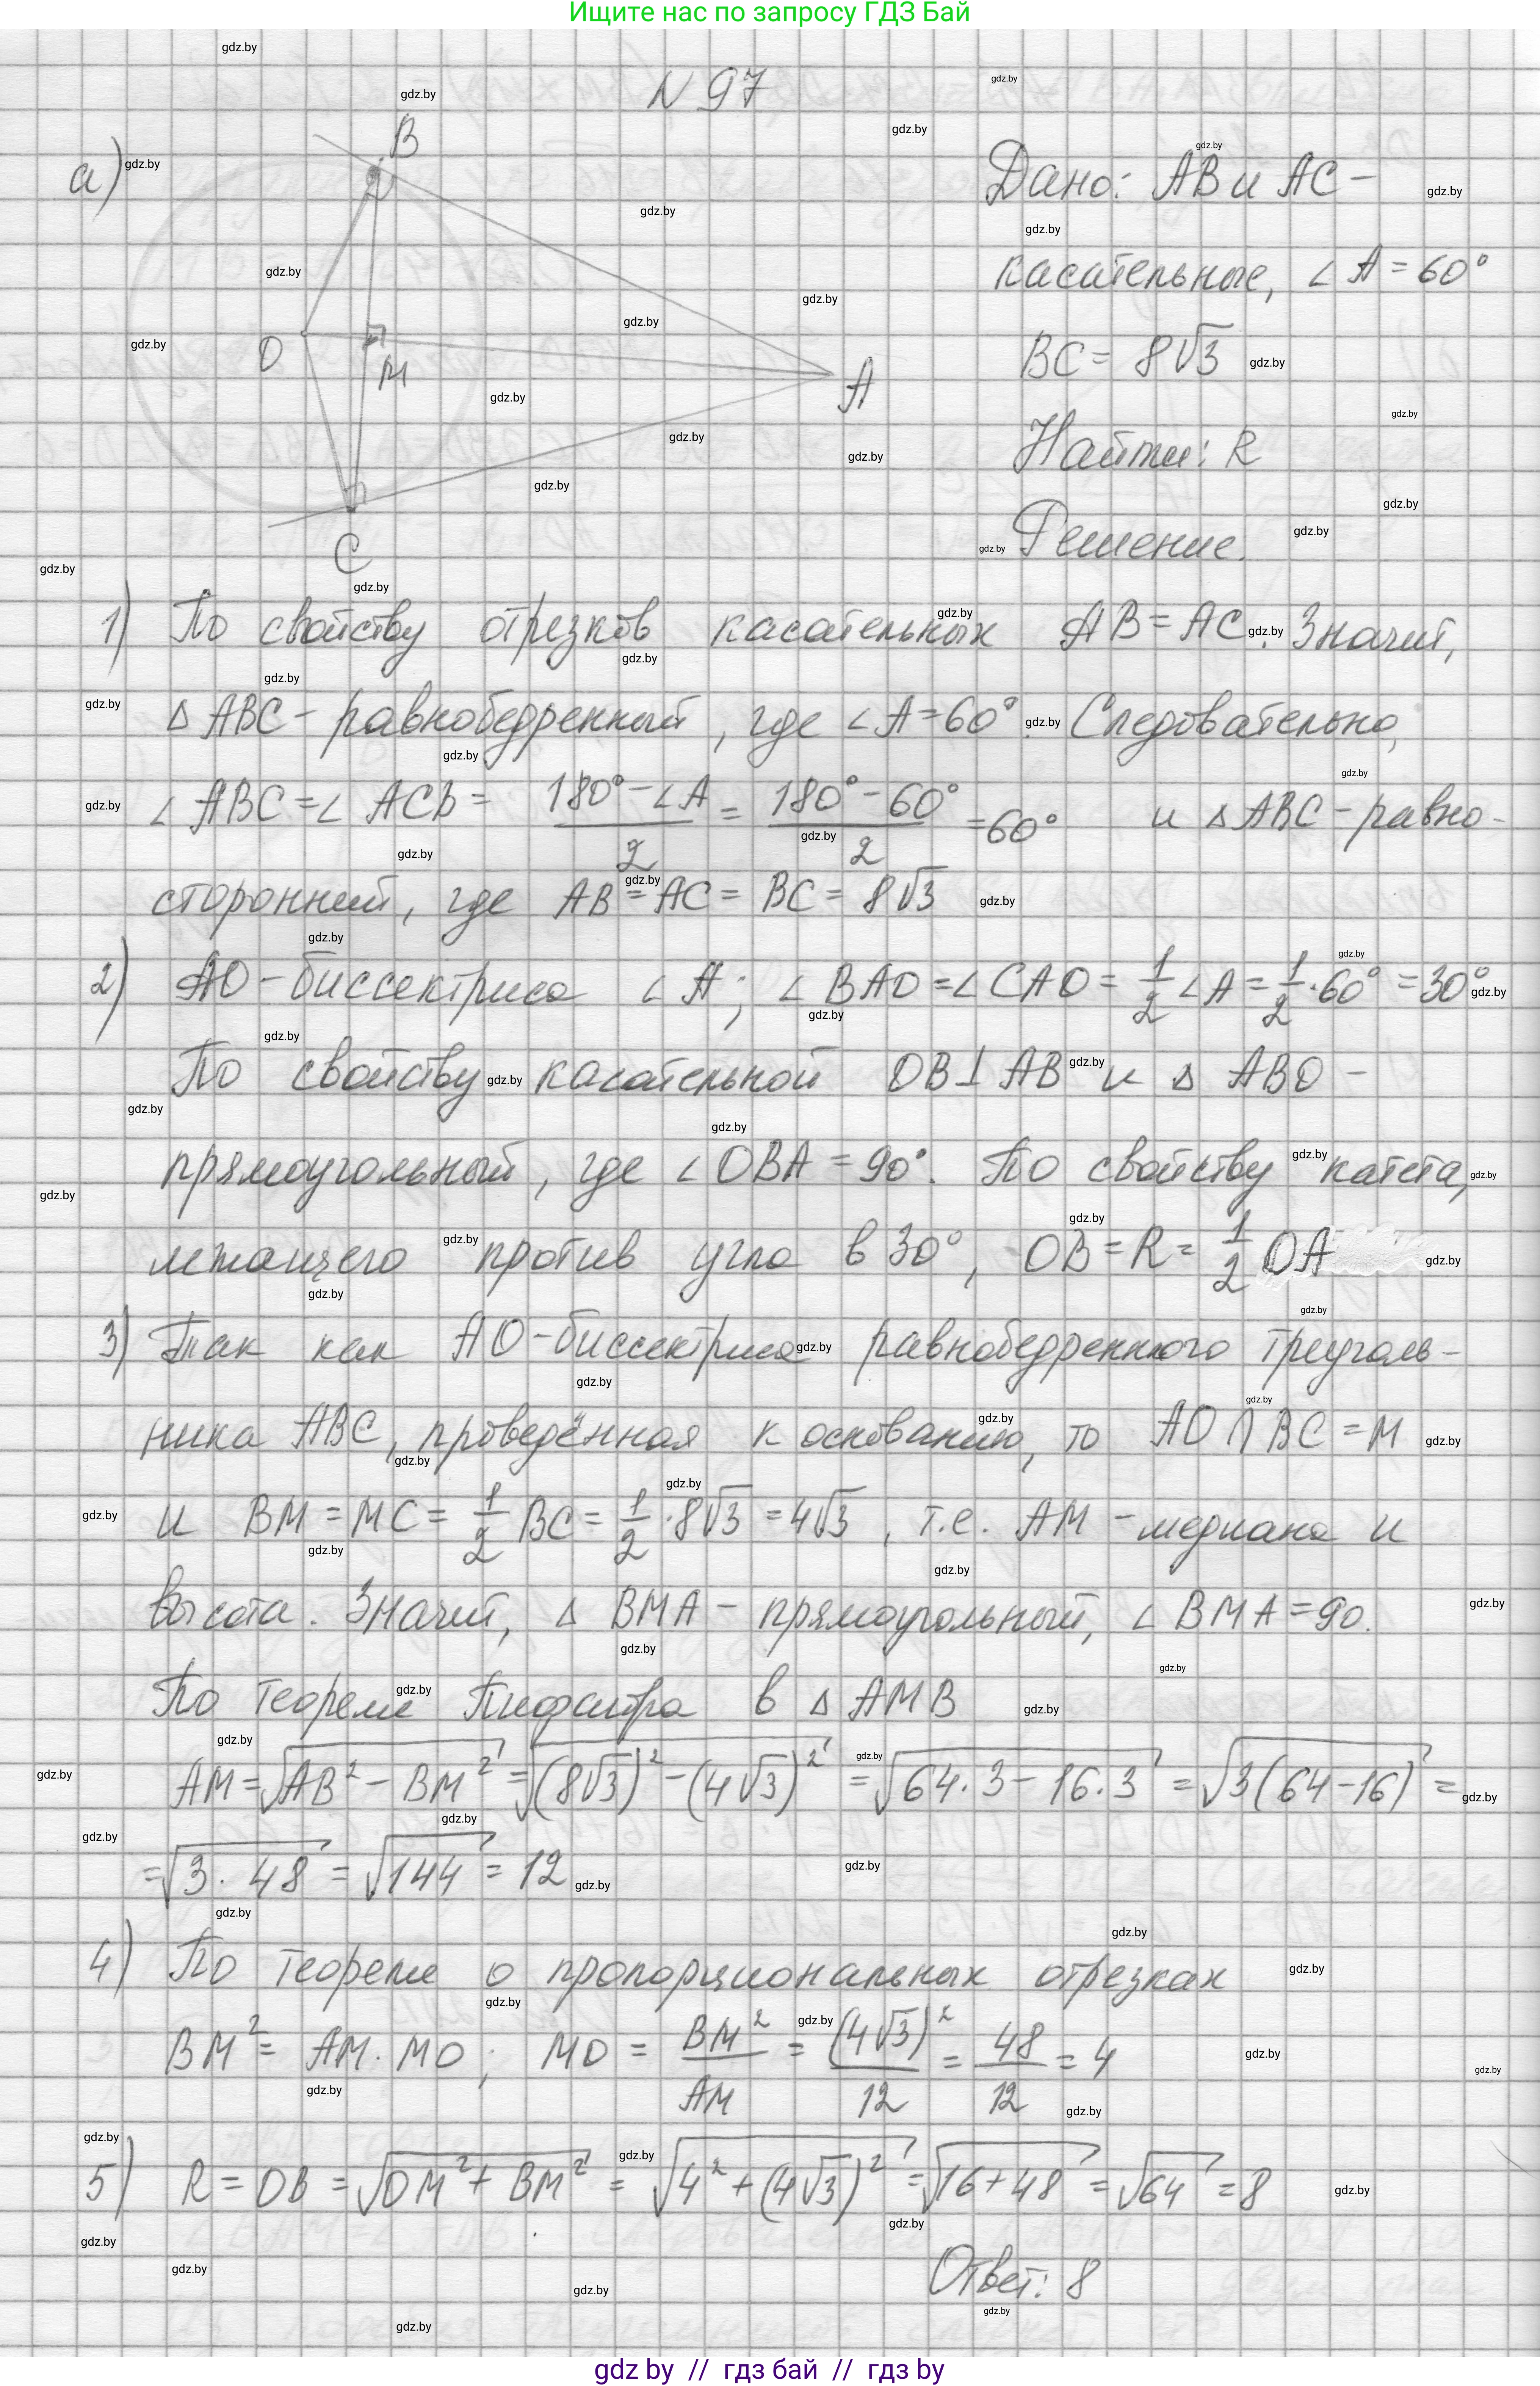 Ищите нас по запросу ГДЗ Бай
N 97
а)
B
O
M
A
C
Дано: AB и AC -
касательные, ∠A = 60°
BC = 8√3
Найти: R
Решение.
1) По свойству отрезков касательных AB = AC. Значит,
Δ ABC - равнобедренный, где ∠A = 60°. Следовательно,
∠ABC = ∠ACB = (180° - ∠A)/2 = (180° - 60°)/2 = 60° и Δ ABC - равно-
сторонний, где AB = AC = BC = 8√3
2) AO - биссектриса ∠A; ∠BAO = ∠CAO = 1/2 ∠A = 1/2 · 60° = 30°
По свойству касательной OB ⊥ AB и Δ ABO -
прямоугольный, где ∠OBA = 90°. По свойству катета,
лежащего против угла в 30°, OB = R = 1/2 OA
3) Так как AO - биссектриса равнобедренного треуголь-
ника ABC, проведённая к основанию, то AO ∩ BC = M
и BM = MC = 1/2 BC = 1/2 · 8√3 = 4√3, т.е. AM - медиана и
высота. Значит, Δ BMA - прямоугольный, ∠BMA = 90.
По теореме Пифагора в Δ AMB
AM = √(AB² - BM²) = √((8√3)² - (4√3)²) = √(64·3 - 16·3) = √(3(64-16)) =
= √(3·48) = √144 = 12
4) По теореме о пропорциональных отрезках
BM² = AM · MO; MO = BM²/AM = (4√3)²/12 = 48/12 = 4
5) R = OB = √(OM² + BM²) = √(4² + (4√3)²) = √(16+48) = √64 = 8
Ответ: 8
gdz by // гдз бай // гдз by